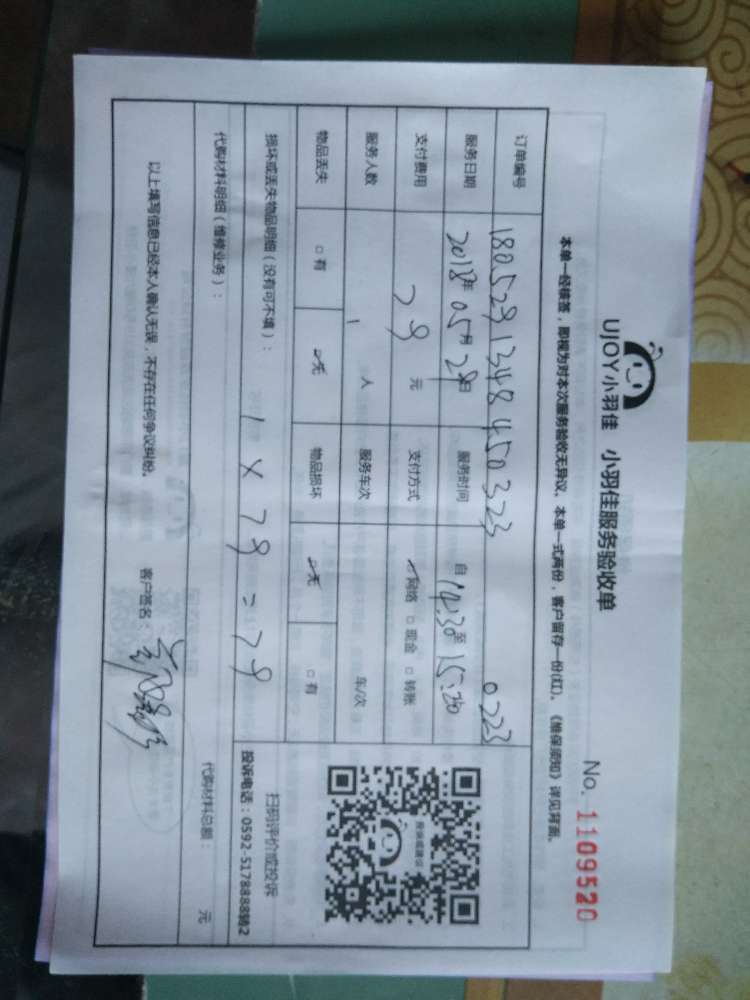 UJOY小羽佳 小羽佳服务验收单
No. 1109520
本单一经核签，即视为对本次服务验收无异议。本单一式两份，客户留存一份(红)。《维保须知》详见背面。
订单编号 180529134845032 3 0223
服务日期 2018年05月29日 服务时间 自14:30至15:20
支付费用 79元 支付方式 ☑网络 □现金 □转账
服务人数 1 人 服务车次 车/次
物品丢失 □有 ☑无 物品损坏 ☑无 □有
损坏或丢失物品明细（没有可不填）：
1×79=79
代购材料明细（维修业务）：
代购材料总额： 元
以上填写信息已经本人确认无误，不存在任何争议纠纷。
客户签名：
投诉或建议
扫码评价或投诉
投诉电话：0592-5178888转2